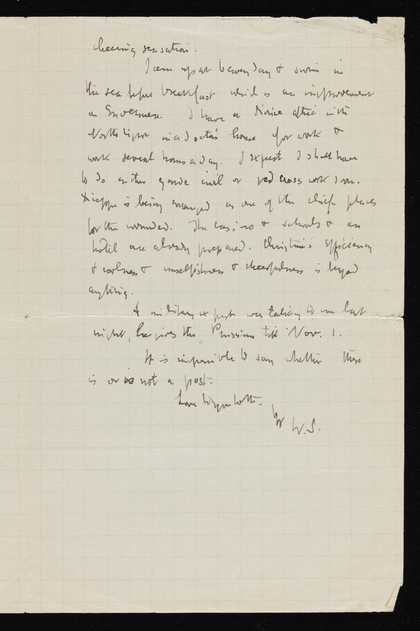 cheering sensation.
I am up at 6 every day & swim in
the sea before breakfast which is an improvement
on Envermeu. I have a divine attic with
North light in a doctor's house for work &
work several hours a day. I expect I shall have
to do either garde civil or red cross work soon.
Dieppe is being arranged as one of the chief places
for the wounded. The casino & schools & an
hôtel are already prepared. Christine's efficiency
& coolness & unselfishness & cheerfulness is beyond
anything.
A military expert was talking to me last
night, he gives the Prussians till Nov. 1.
It is impossible to say whether there
is or is not a post.
Love to you both.
W. S.